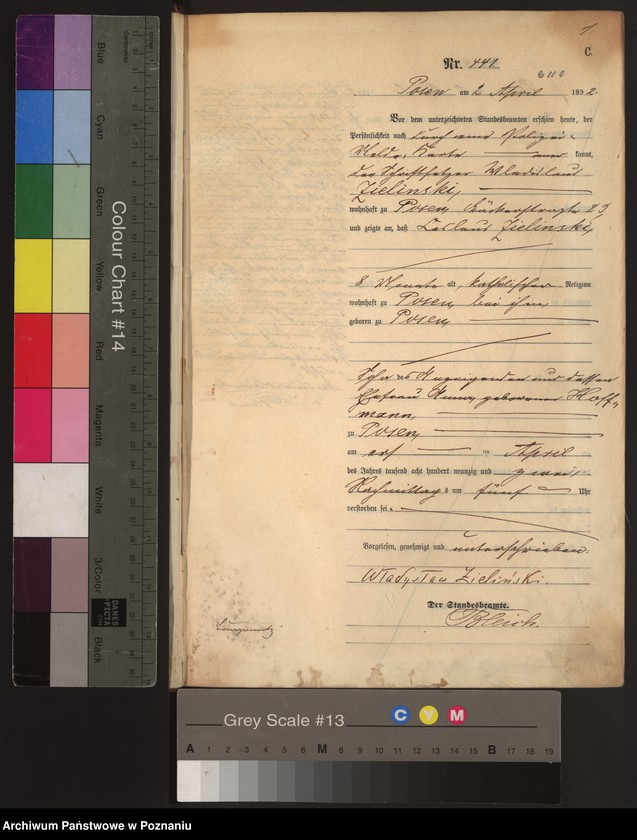 C.
Nr. 442
Posen am 2 April 1892.
Vor dem unterzeichneten Standesbeamten erschien heute, der
Persönlichkeit nach durch eine Polizei-
Melde, Karte aner kannt,
der Schriftsetzer Wladislaus
Zielinski,
wohnhaft zu Posen,
und zeigte an, daß Zielinski,
8 Monate alt, katholischer Religion
wohnhaft zu Posen, bei ihm,
geboren zu Posen,
Sohn des Anzeigenden und dessen
Ehefrau Anna, geborenen Hoff-
mann,
zu Posen,
am April
des Jahres tausend acht hundert neunzig und zwei,
Nachmittags um fünf Uhr
verstorben sei.
Vorgelesen, genehmigt und unterschrieben.
Władysław Zieliński.
Der Standesbeamte.
Blue
Cyan
Green
Yellow
Red
Magenta
White
3/Color
Black
Colour Chart #14
DANES
PICTA
Centimetres
Inches
Grey Scale #13
C Y M
A 1 2 3 4 5 6 M 8 9 10 11 12 13 14 15 B 17 18 19
Archiwum Państwowe w Poznaniu